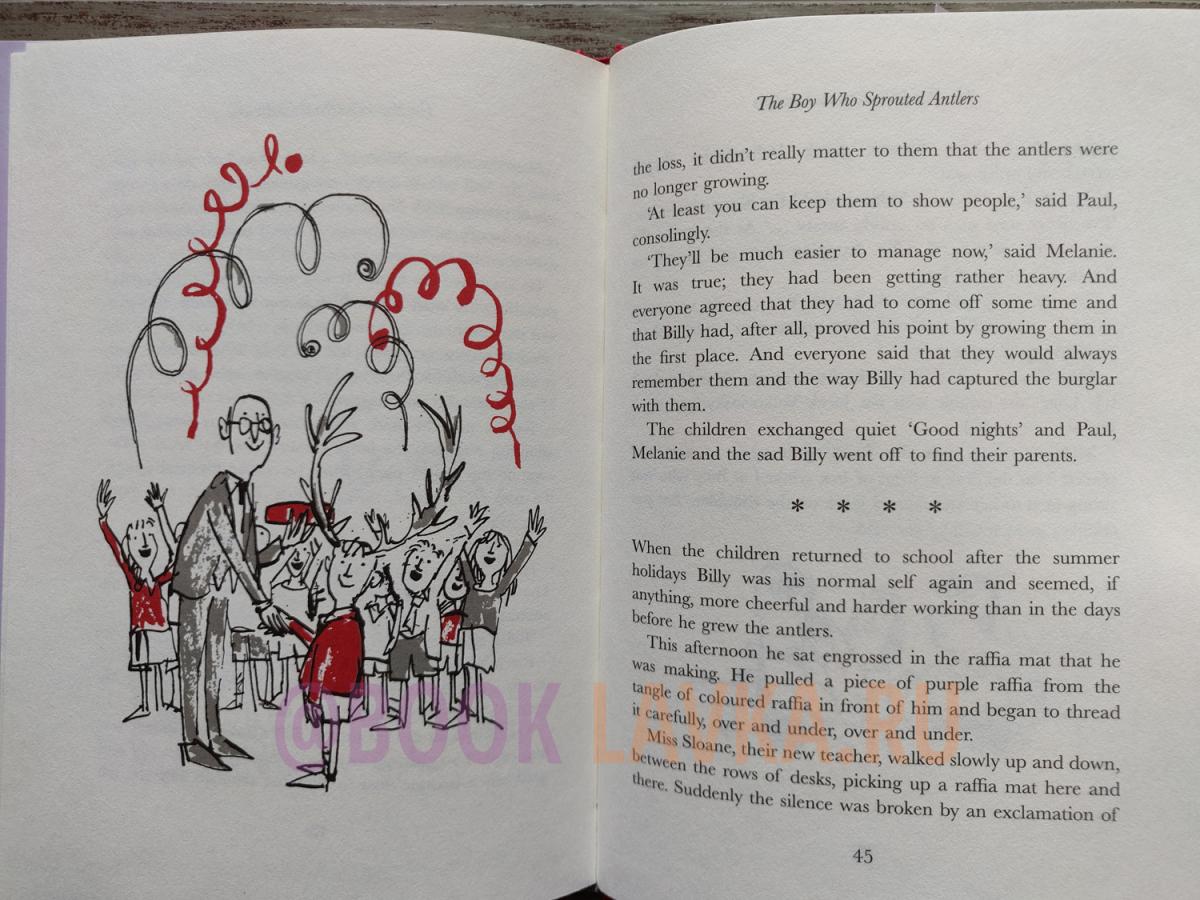 The Boy Who Sprouted Antlers
the loss, it didn't really matter to them that the antlers were
no longer growing.
'At least you can keep them to show people,' said Paul,
consolingly.
'They'll be much easier to manage now,' said Melanie.
It was true; they had been getting rather heavy. And
everyone agreed that they had to come off some time and
that Billy had, after all, proved his point by growing them in
the first place. And everyone said that they would always
remember them and the way Billy had captured the burglar
with them.
The children exchanged quiet 'Good nights' and Paul,
Melanie and the sad Billy went off to find their parents.
* * * *
When the children returned to school after the summer
holidays Billy was his normal self again and seemed, if
anything, more cheerful and harder working than in the days
before he grew the antlers.
This afternoon he sat engrossed in the raffia mat that he
was making. He pulled a piece of purple raffia from the
tangle of coloured raffia in front of him and began to thread
it carefully, over and under, over and under.
Miss Sloane, their new teacher, walked slowly up and down,
between the rows of desks, picking up a raffia mat here and
there. Suddenly the silence was broken by an exclamation of
45
@BOOK LAVKA.RU